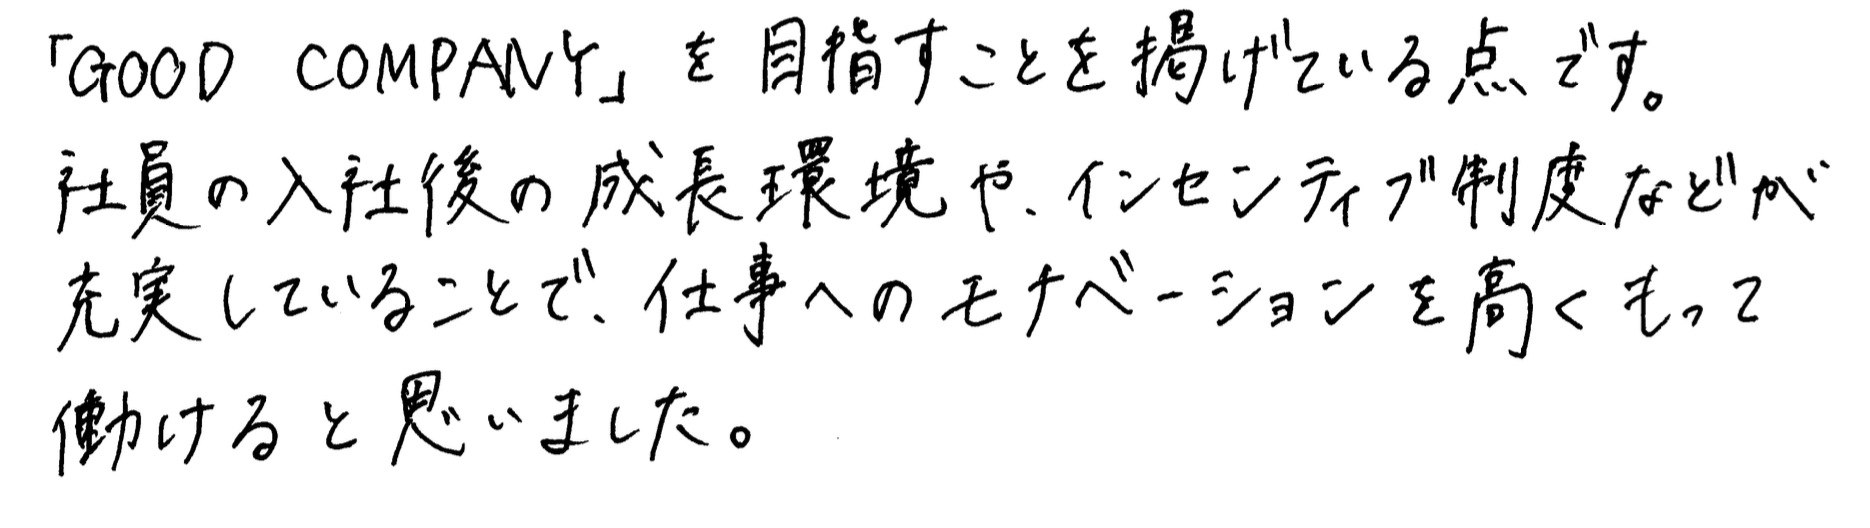 「GOOD COMPANY」を目指すことを掲げている点です。
社員の入社後の成長環境や、インセンティブ制度などが
充実していることで、仕事へのモチベーションを高くもって
働けると思いました。